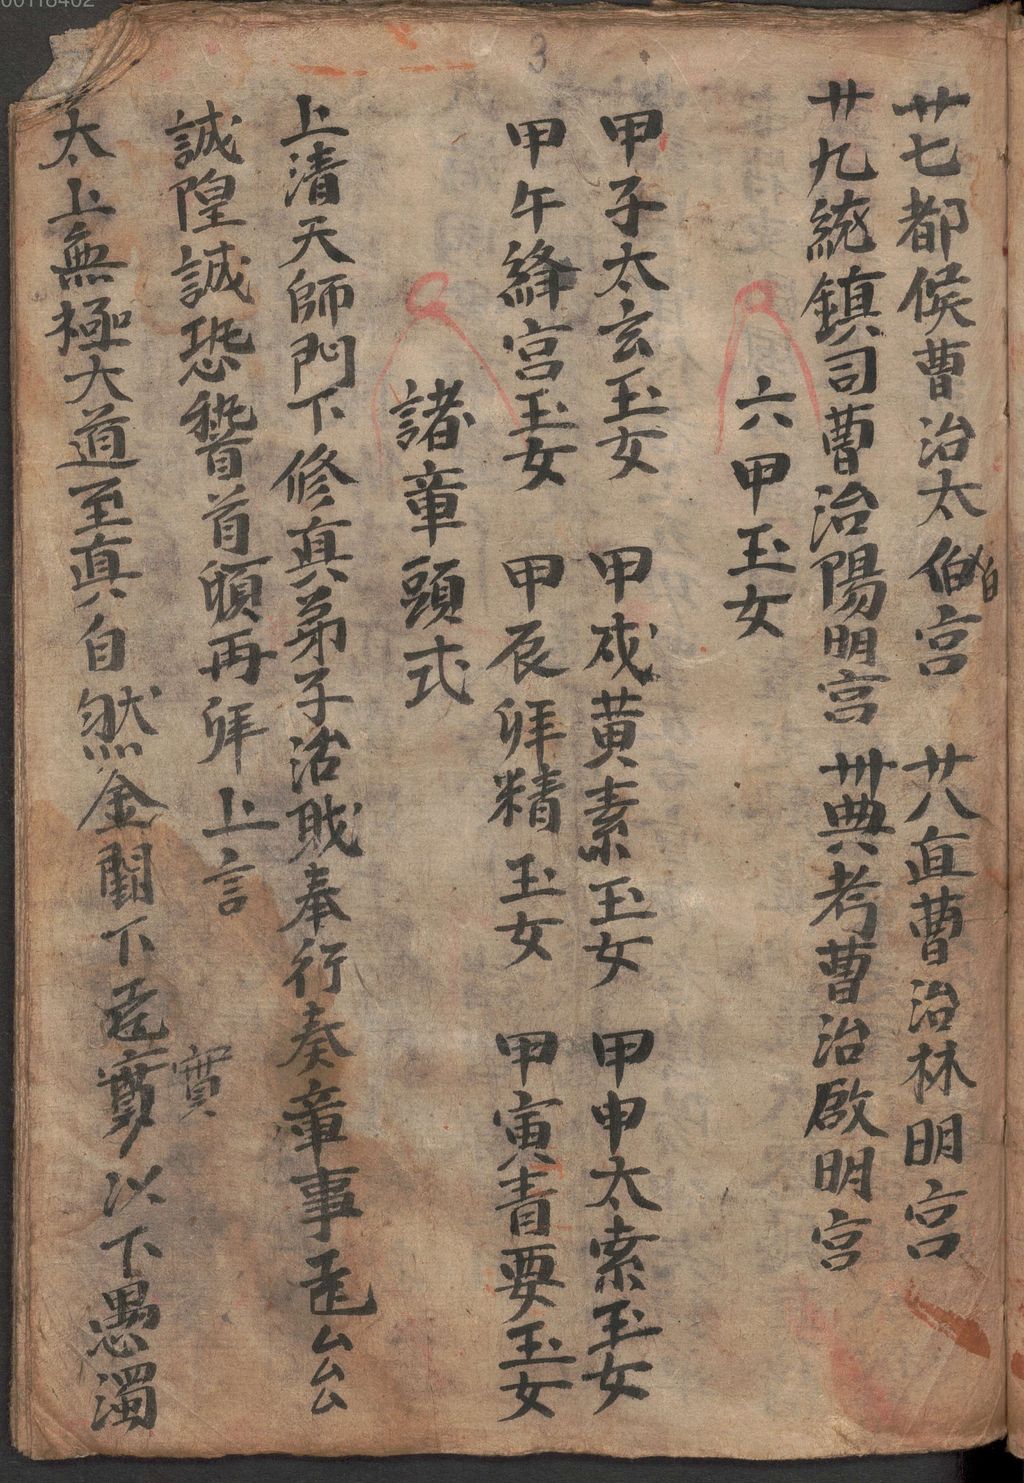 廿七都候曹治太伯宮 廿八直曹治林明宮
廿九統鎮司曹治陽明宮 卅典考曹治啟明宮
六甲玉女
甲子太玄玉女 甲戌黃素玉女 甲申太素玉女
甲午絳宮玉女 甲辰拜精玉女 甲寅青要玉女
諸章頭式
上清天師門下修真弟子治職奉行奏章事臣厶厶
誠隍誠恐稽首頓再拜上言
實
太上無極大道至真自然金闕下臣以下愚濁
3
00118402